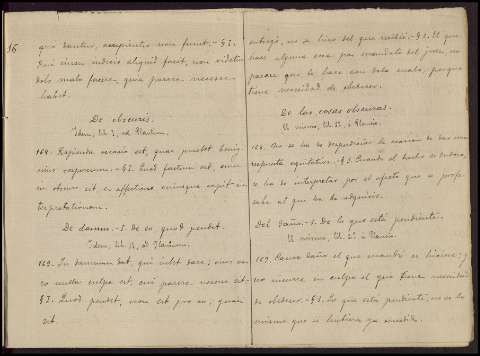 16
quo dantur, accipientis non fiunt. - § I.
Qui jussu judicis aliquid facit, non videtur
dolo malo facere, quia parere necesse
habet.
De obscuris.
Idem, lib. I, ad Plautium.
168. Rapienda occasio est, quae praebet benig
nius responsum. - § I. Quod factum est, cum
in obscuro sit, ex affectione cujusque capit in
terpretationem.
De damno. - I. De eo, quod pendet.
Idem, lib. II, ad Plautium.
169. Is damnum dat, qui jubet dare; ejus ve
ro nulla culpa est, cui parere necesse sit.
§ I. Quod pendet, non est pro eo, quasi
sit.
entregó, no se hace del que recibió. - § 1. El que
hace alguna cosa por mandato del juez, no
parece que lo hace con dolo malo, porque
tiene necesidad de obedecer.
De las cosas obscuras.
El mismo, lib. I, á Plaucio.
168. No se ha de desperdiciar la ocasión de dar una
respuesta equitativa. - § 1. Cuando el hecho es obscuro,
se ha de interpretar por el afecto que se profe-
saba al que
Del daño. - I. De lo que está pendiente.
El mismo, lib. II, á Plaucio.
169. Causa daño el que mandó se hiciese; y
no incurre en culpa el que tiene necesidad
de obedecer. - § 1. Lo que está pendiente, no es lo
mismo que si hubiera ya sucedido.